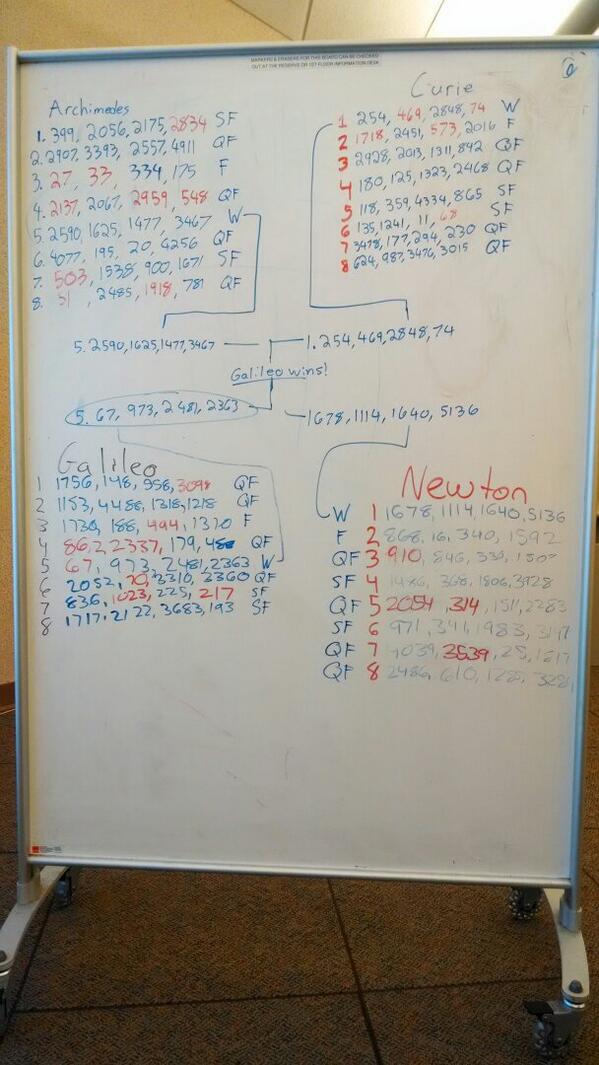 MARKERS & ERASERS FOR THIS BOARD CAN BE CHECKED
OUT AT THE RESERVE OR 1ST FLOOR INFORMATION DESK
Archimedes
1. 399, 2056, 2175, 2834 SF
2. 2907, 3393, 2557, 4911 QF
3. 27, 33, 334, 175 F
4. 2137, 2067, 2959, 548 QF
5. 2590, 1625, 1477, 3467 W
6. 4077, 195, 20, 4256 QF
7. 503, 1538, 900, 1671 SF
8. 51, 2485, 1918, 781 QF
Curie
1 254, 469, 2848, 74 W
2 1718, 2451, 573, 2016 F
3 2928, 2013, 1311, 842 QF
4 180, 125, 1323, 2468 QF
5 118, 359, 4334, 865 SF
6 135, 1241, 11, 68 SF
7 3478, 177, 294, 230 QF
8 624, 987, 3476, 3015 QF
5. 2590, 1625, 1477, 3467
1. 254, 469, 2848, 74
Galileo wins!
5. 67, 973, 2481, 2363
1678, 1114, 1640, 5136
Galileo
1 1756, 148, 958, 3098 QF
2 1153, 4488, 1318, 1218 QF
3 1730, 188, 494, 1310 F
4 862, 2337, 179, 488 QF
5 67, 973, 2481, 2363 W
6 2052, 70, 3310, 3360 QF
7 836, 1023, 225, 217 SF
8 1717, 2122, 3683, 193 SF
Newton
W 1 1678, 1114, 1640, 5136
F 2 868, 16, 340, 1592
QF 3 910, 846, 330, 1507
SF 4 1486, 368, 1806, 3928
QF 5 2054, 314, 1511, 2283
SF 6 971, 341, 1983, 3147
QF 7 4039, 3539, 25, 1817
QF 8 2486, 610,